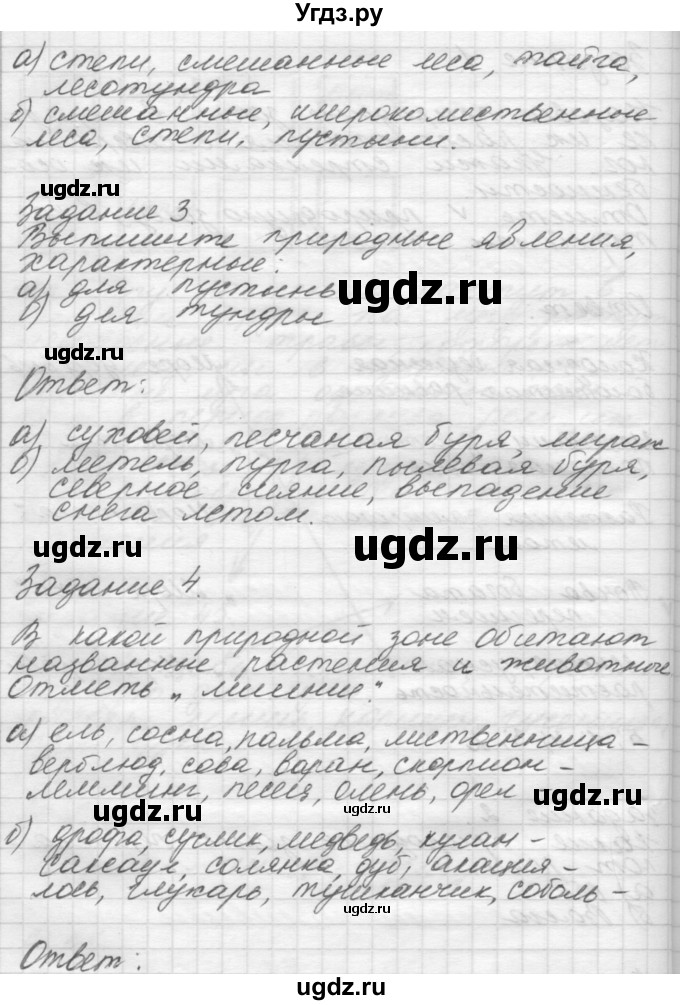 Угдз.ру
а) степи, смешанные леса, тайга,
лесотундра
б) смешанные, широколиственные
леса, степи, пустыни.
ugdz.ru
Задание 3.
Выпишите природные явления,
характерные:
а) для пустынь
б) для тундры
ugdz.ru
ugdz.ru
Ответ:
а) суховей, песчаная буря, мираж
б) метель, пурга, пылевая буря,
северное сияние, выпадение
снега летом.
ugdz.ru
ugdz.ru
Задание 4.
В какой природной зоне обитают
названные растения и животные
Отметь „лишние".
а) ель, сосна, пальма, лиственница -
верблюд, сова, варан, скорпион -
лемминг, песец, олень, орел
ugdz.ru
ugdz.ru
б) дрофа, суслик, медведь, кулан -
саксаул, солянка, дуб, акация -
лось, глухарь, тушканчик, соболь -
ugdz.ru
Ответ:
ugdz.ru
ugdz.ru